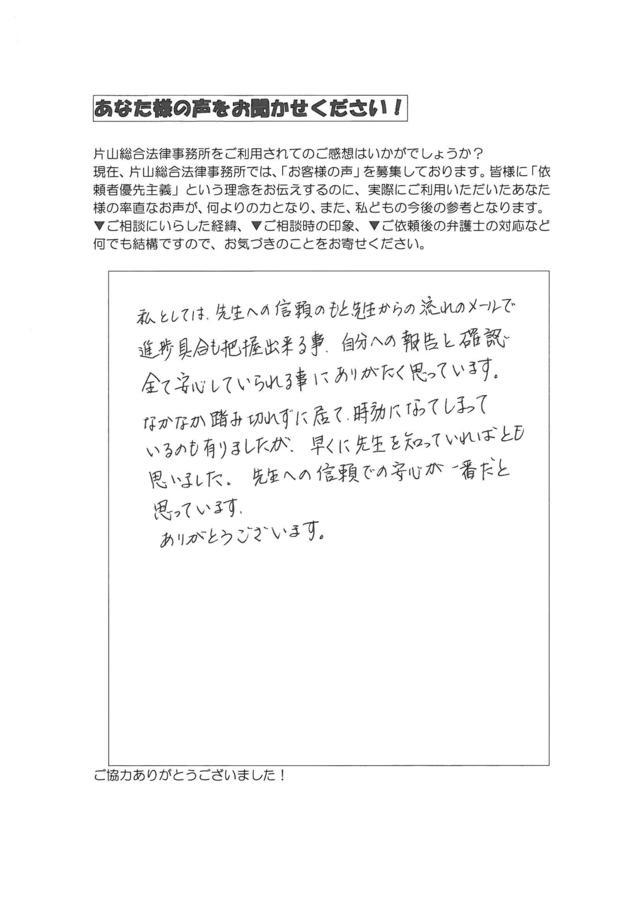 あなた様の声をお聞かせください!
片山総合法律事務所をご利用されてのご感想はいかがでしょうか?
現在、片山総合法律事務所では、「お客様の声」を募集しております。皆様に「依
頼者優先主義」という理念をお伝えするのに、実際にご利用いただいたあなた
様の率直なお声が、何よりの力となり、また、私どもの今後の参考となります。
▼ご相談にいらした経緯、▼ご相談時の印象、▼ご依頼後の弁護士の対応など
何でも結構ですので、お気づきのことをお寄せください。
私としては、先生への信頼のもと先生からの流れのメールで
進捗具合も把握出来る事、自分への報告と確認
全て安心していられる事にありがたく思っています。
なかなか踏み切れずに居て、時効になってしまって
いるのも有りましたが、早くに先生を知っていればとも
思いました。先生への信頼での安心が一番だと
思っています。
ありがとうございます。
ご協力ありがとうございました!